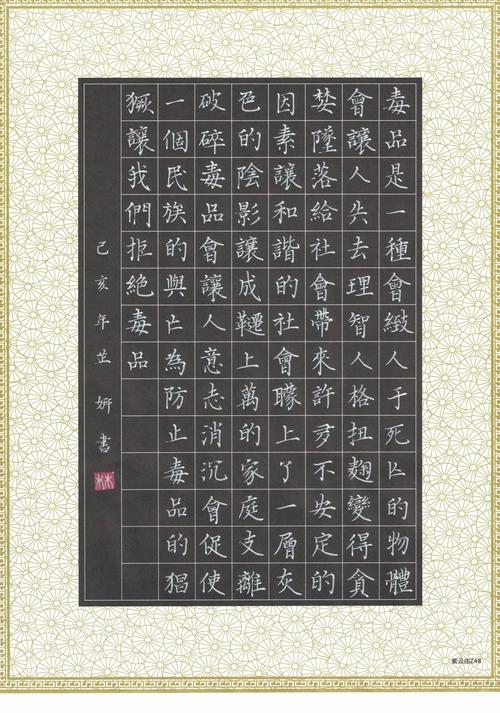 毒品是一種會緻人于死亾的物體
會讓人失去理智人格扭麹變得貪
婪墜落給社會帶來許多不安定的
因素讓和諧的社會朦上了一層灰
色的陰影讓成韆上萬的家庭支離
破碎毒品會讓人意志消沉會促使
一個民族的與亾為防止毒品的猖
獗讓我們拒絕毒品
己亥年芷妍書
林
紫云庄Z48